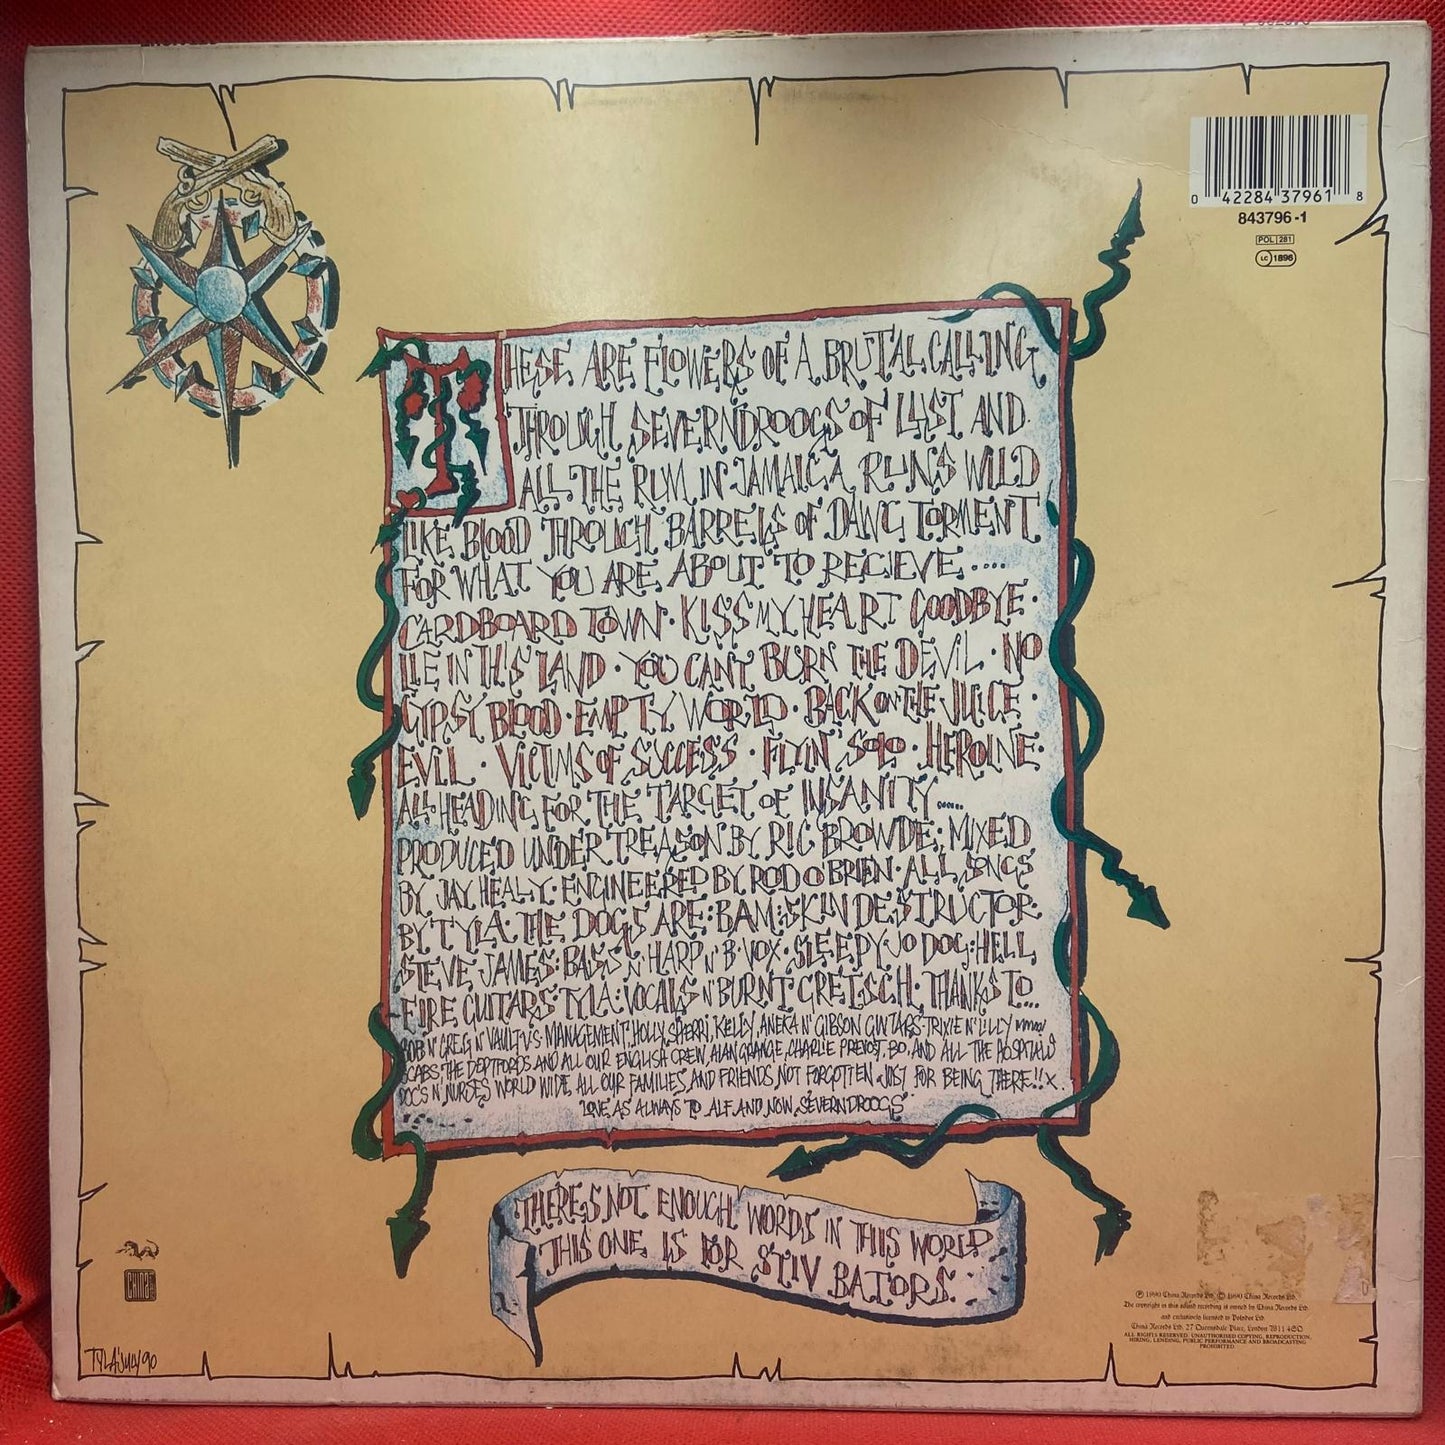 0 42284 37961 8
843796-1
POL 281
LC 1896
THESE ARE FLOWERS OF A BRUTAL CALLING
THROUGH SEVERNDROOGS OF LUST AND
ALL THE RUM IN JAMAICA RUNS WILD
LIKE BLOOD THROUGH BARRELS OF DAWG TORMENT
FOR WHAT YOU ARE ABOUT TO RECIEVE....
CARDBOARD TOWN · KISS MY HEART GOODBYE ·
LIE IN THIS LAND · YOU CAN'T BURN THE DEVIL · NO
GYPSY BLOOD · EMPTY WORLD · BACK ON THE JUICE ·
EVIL · VICTIMS OF SUCCESS · FLYIN' SOLO · HEROINE ·
ALL HEADING FOR THE TARGET OF INSANITY.....
PRODUCED UNDER TREASON BY RIC BROWDE; MIXED
BY JAY HEALY · ENGINEERED BY ROD O BRIEN · ALL SONGS
BY TYLA · THE DOGS ARE: BAM: SKIN DESTRUCTOR ·
STEVE JAMES: BASS N' HARP N' B·VOX · SLEEPY JO DOG: HELL
-FIRE GUITARS · TYLA: VOCALS N' BURNT GRETSCH · THANKS TO...
BOB N' GREG N' VAULT V'S MANAGEMENT, HOLLY, SHERRI, KELLY, ANEKA N' GIBSON GUITARS · TRIXIE N' LILLY
SCABS THE DEPTFORDS AND ALL OUR ENGLISH CREW, ALAN GRANGE, CHARLIE PREVOST, BO, AND ALL THE HOSPITALS
DOCS N' NURSES WORLD WIDE, ALL OUR FAMILIES AND FRIENDS NOT FORGOTTEN · JUST FOR BEING THERE!! X.
LOVE AS ALWAYS TO ALF AND NOW SEVERNDROOGS
THERE'S NOT ENOUGH WORDS IN THIS WORLD
THIS ONE IS FOR STIV BATORS.
CHINA
℗ 1990 China Records Ltd. © 1990 China Records Ltd.
The copyright in this sound recording is owned by China Records Ltd.
and exclusively licensed to Polydor Ltd.
China Records Ltd. 27 Queensdale Place, London W11 4SQ
ALL RIGHTS RESERVED. UNAUTHORISED COPYING, REPRODUCTION,
HIRING, LENDING, PUBLIC PERFORMANCE AND BROADCASTING
PROHIBITED.
TYLA JULY 90